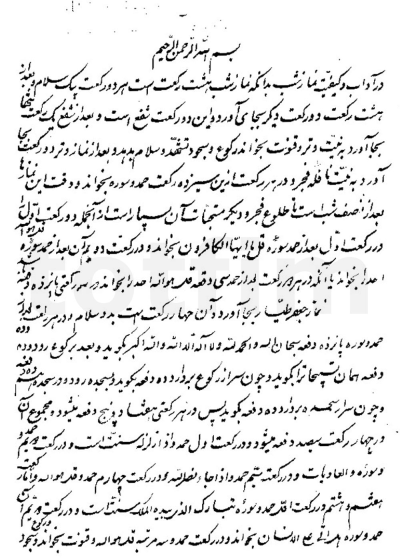 بسم الله الرحمن الرحیم
در آداب و کیفیت نماز شب بدانکه نماز شب هشت رکعت است هر دو رکعت بیک سلام و بعد از
هشت رکعت دو رکعت دیگر بجای آورد و این دو رکعت شفع است و بعد از شفع یک رکعت تنها
بجا آورد به نیت وتر و قنوت بخواند و رکوع و سجود و تشهد و سلام بدهد و بعد از نماز وتر دو رکعت بجا
آورد به نیت نافله فجر و در هر رکعت ازین سیزده رکعت حمد و سوره بخواند و وقت این نمازها
بعد از نصف شب است تا طلوع فجر و دیگر مستحبات آن بسیار است از آنجمله دو رکعت اول را
در رکعت اول بعد از حمد سوره قل یا ایها الکافرون بخواند و در رکعت دویم آن بعد از حمد سوره قل هو الله
احد بخواند یا آنکه در هر دو رکعت بعد از حمد سی دفعه قل هو الله احد بخواند در هر رکعتی پانزده دفعه
نماز جعفر طیار بجا آورد و آن چهار رکعت است بدو سلام و در هر رکعت بعد از
حمد و سوره پانزده دفعه سبحان الله و الحمد لله و لا اله الا الله و الله اکبر بگوید و بعد بر رکوع رود و ده
دفعه همان تسبیحات را بگوید و چون سر از رکوع بردارد ده دفعه بگوید و بسجده رود و در سجده هم ده دفعه
و چون سر از سجده بردارد ده دفعه بگوید پس در هر رکعتی هفتاد و پنج دفعه میشود و مجموع آن
در چهار رکعت سیصد دفعه میشود و در رکعت اول حمد و اذا زلزله سنت است و در رکعت دویم حمد
و سوره و العادیات و در رکعت سیم حمد و اذا جاء نصر الله و در رکعت چهارم حمد و قل هو الله و در رکعت
هفتم و هشتم در رکعت اول حمد و سوره تبارک الذی بیده الملک سنت است و در رکعت دویم
حمد و سوره هل اتی علی الانسان بخواند و در رکعت حمد و سه مرتبه قل هو الله و قنوت بخواند و رکوع و سجود